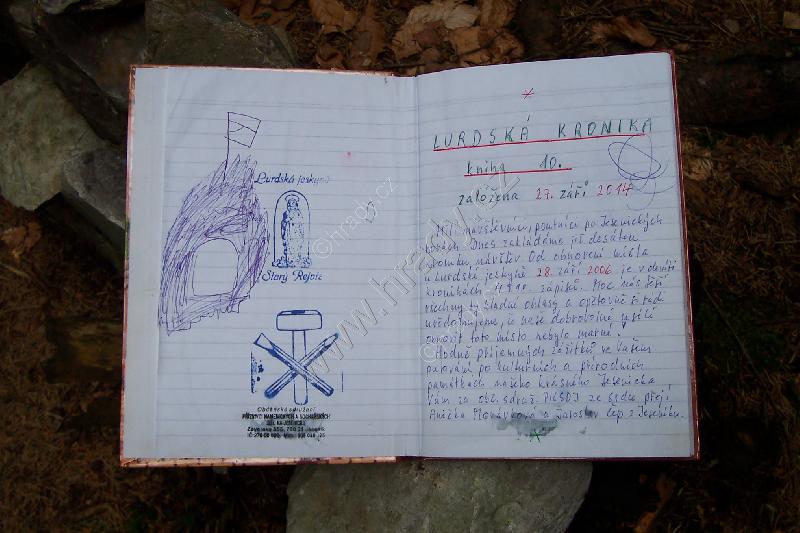 Lurdská jeskyně
Starý Rejvíz
Občanské sdružení
PŘÍZNIVCI KAMENICKÝCH A SOCHAŘSKÝCH
LURDSKÁ KRONIKA
kniha 10.
založena 27. září 2014
Milí návštěvníci, poutníci po Jesenických
horách. Dnes zakládáme již desátou
kroniku návštěv. Od obnovení místa
u Lurdské jeskyně 28. září 2006 je v devíti
kronikách zápisů. Moc nás těší
všechny ty kladné ohlasy a opětovně si tedy
uvědomujeme, že naše dobrovolné úsilí
obnovit toto místo nebylo marné.
Hodně příjemných zážitků ve Vašem
putování po kulturních a přírodních
památkách našeho krásného Jesenicka
Vám za obč. sdruž. ze srdce přejí
Anička a Jaroslav z Jeseníku.
©hrady.cz
www.hrady.cz